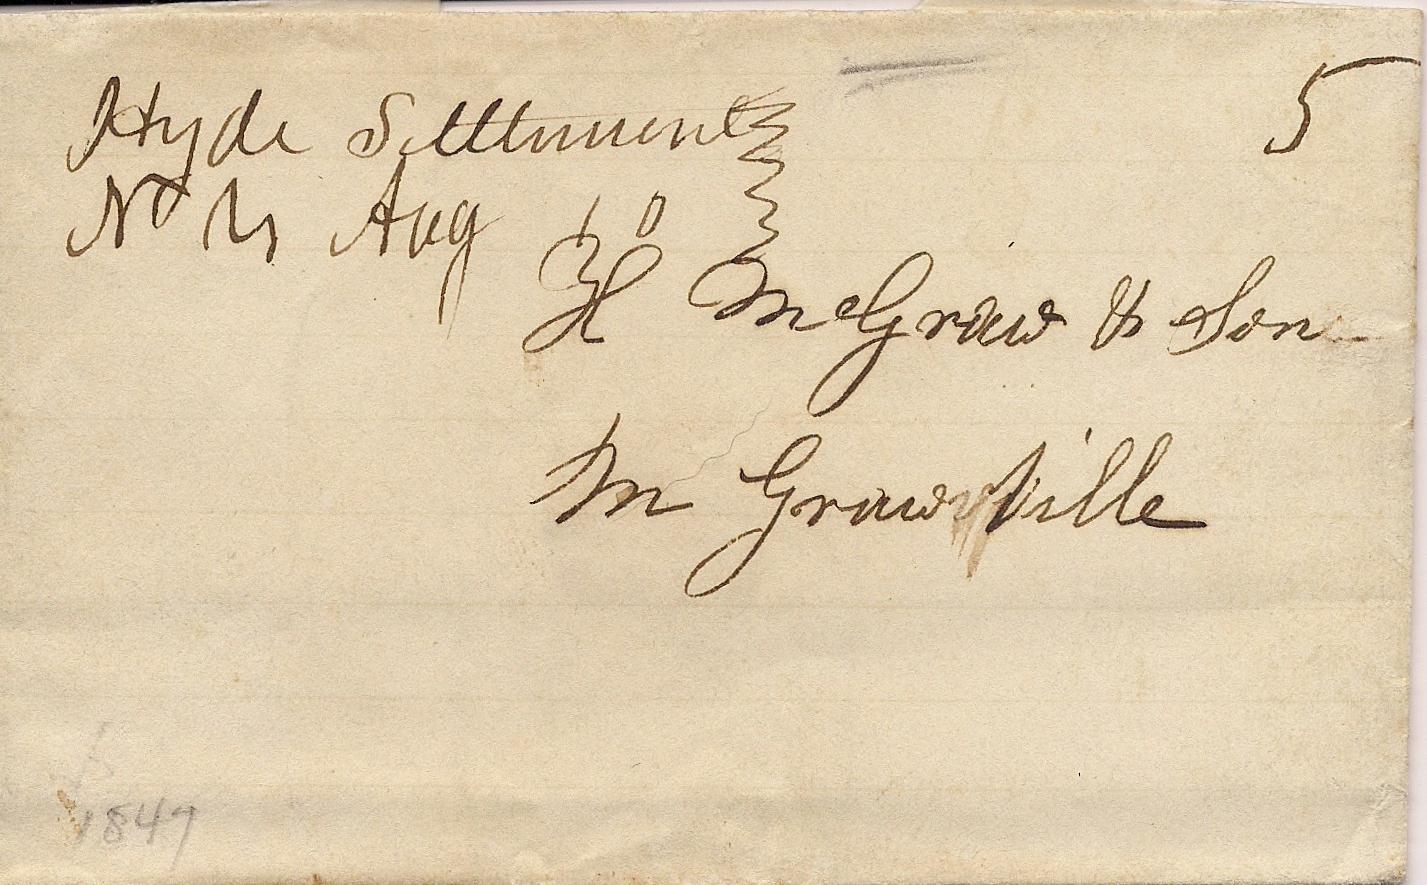 Hyde Settlement
5
N Y Aug 10
H McGraw & Son
Mc Grawville
1847